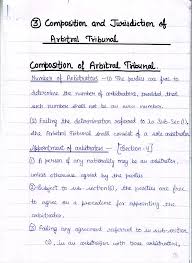 ③ Composition and Jurisdiction of
Arbitral Tribunal
Composition of Arbitral Tribunal.
Number of Arbitrators - (1) The parties are free to
determine the number of arbitrators, provided that
such number shall not be an even number.
(2) Failing the determination referred to in Sub-Sec(1),
the Arbitral Tribunal shall consist of a sole arbitrator.
Appointment of arbitrators - [Section-11]
(1) A person of any nationality may be an arbitrator,
unless otherwise agreed by the parties
(2) Subject to sub-section(6), the parties are free
to agree on a procedure for appointing the
arbitrator.
(3) Failing any agreement referred to in sub-section
in an arbitration with three arbitrators,